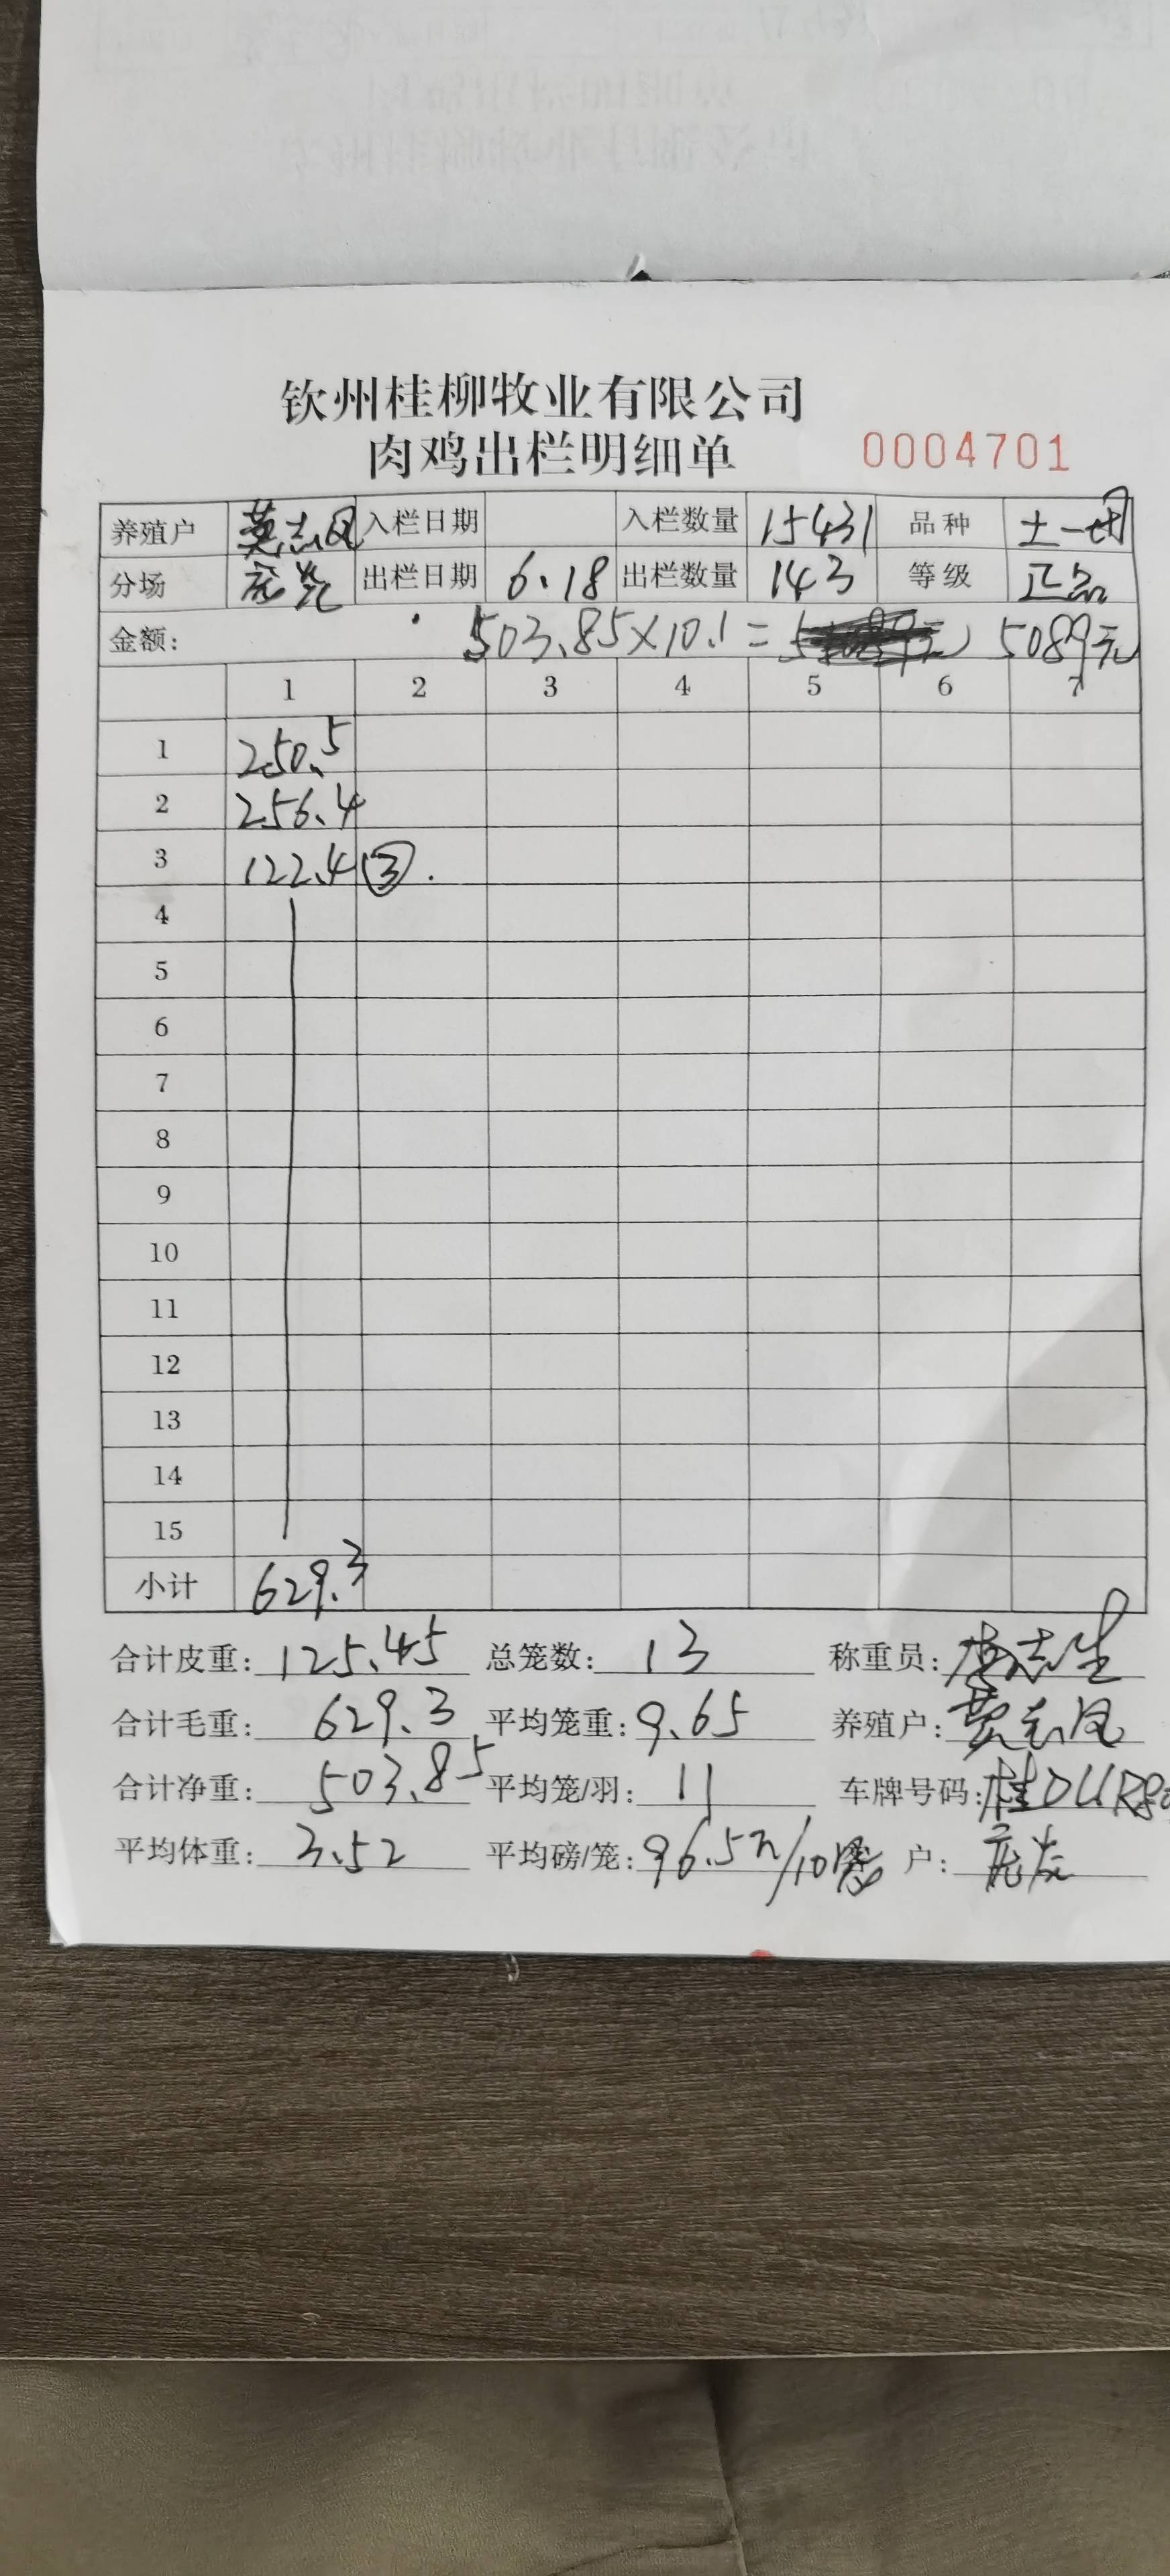 钦州桂柳牧业有限公司
肉鸡出栏明细单 0004701
养殖户 入栏日期 入栏数量 15431 品种 土一
分场 出栏日期 6.18 出栏数量 143 等级 正品
金额: 503.85×10.1= 5089元
1 2 3 4 5 6 7
1 250.5
2 256.4
3 122.4 ③.
4
5
6
7
8
9
10
11
12
13
14
15
小计 629.3
合计皮重: 125.45 总笼数: 13 称重员: 李志生
合计毛重: 629.3 平均笼重: 9.65 养殖户:
合计净重: 503.85 平均笼/羽: 11 车牌号码: 桂D
平均体重: 3.52 平均磅/笼: 96.5 /10 户: